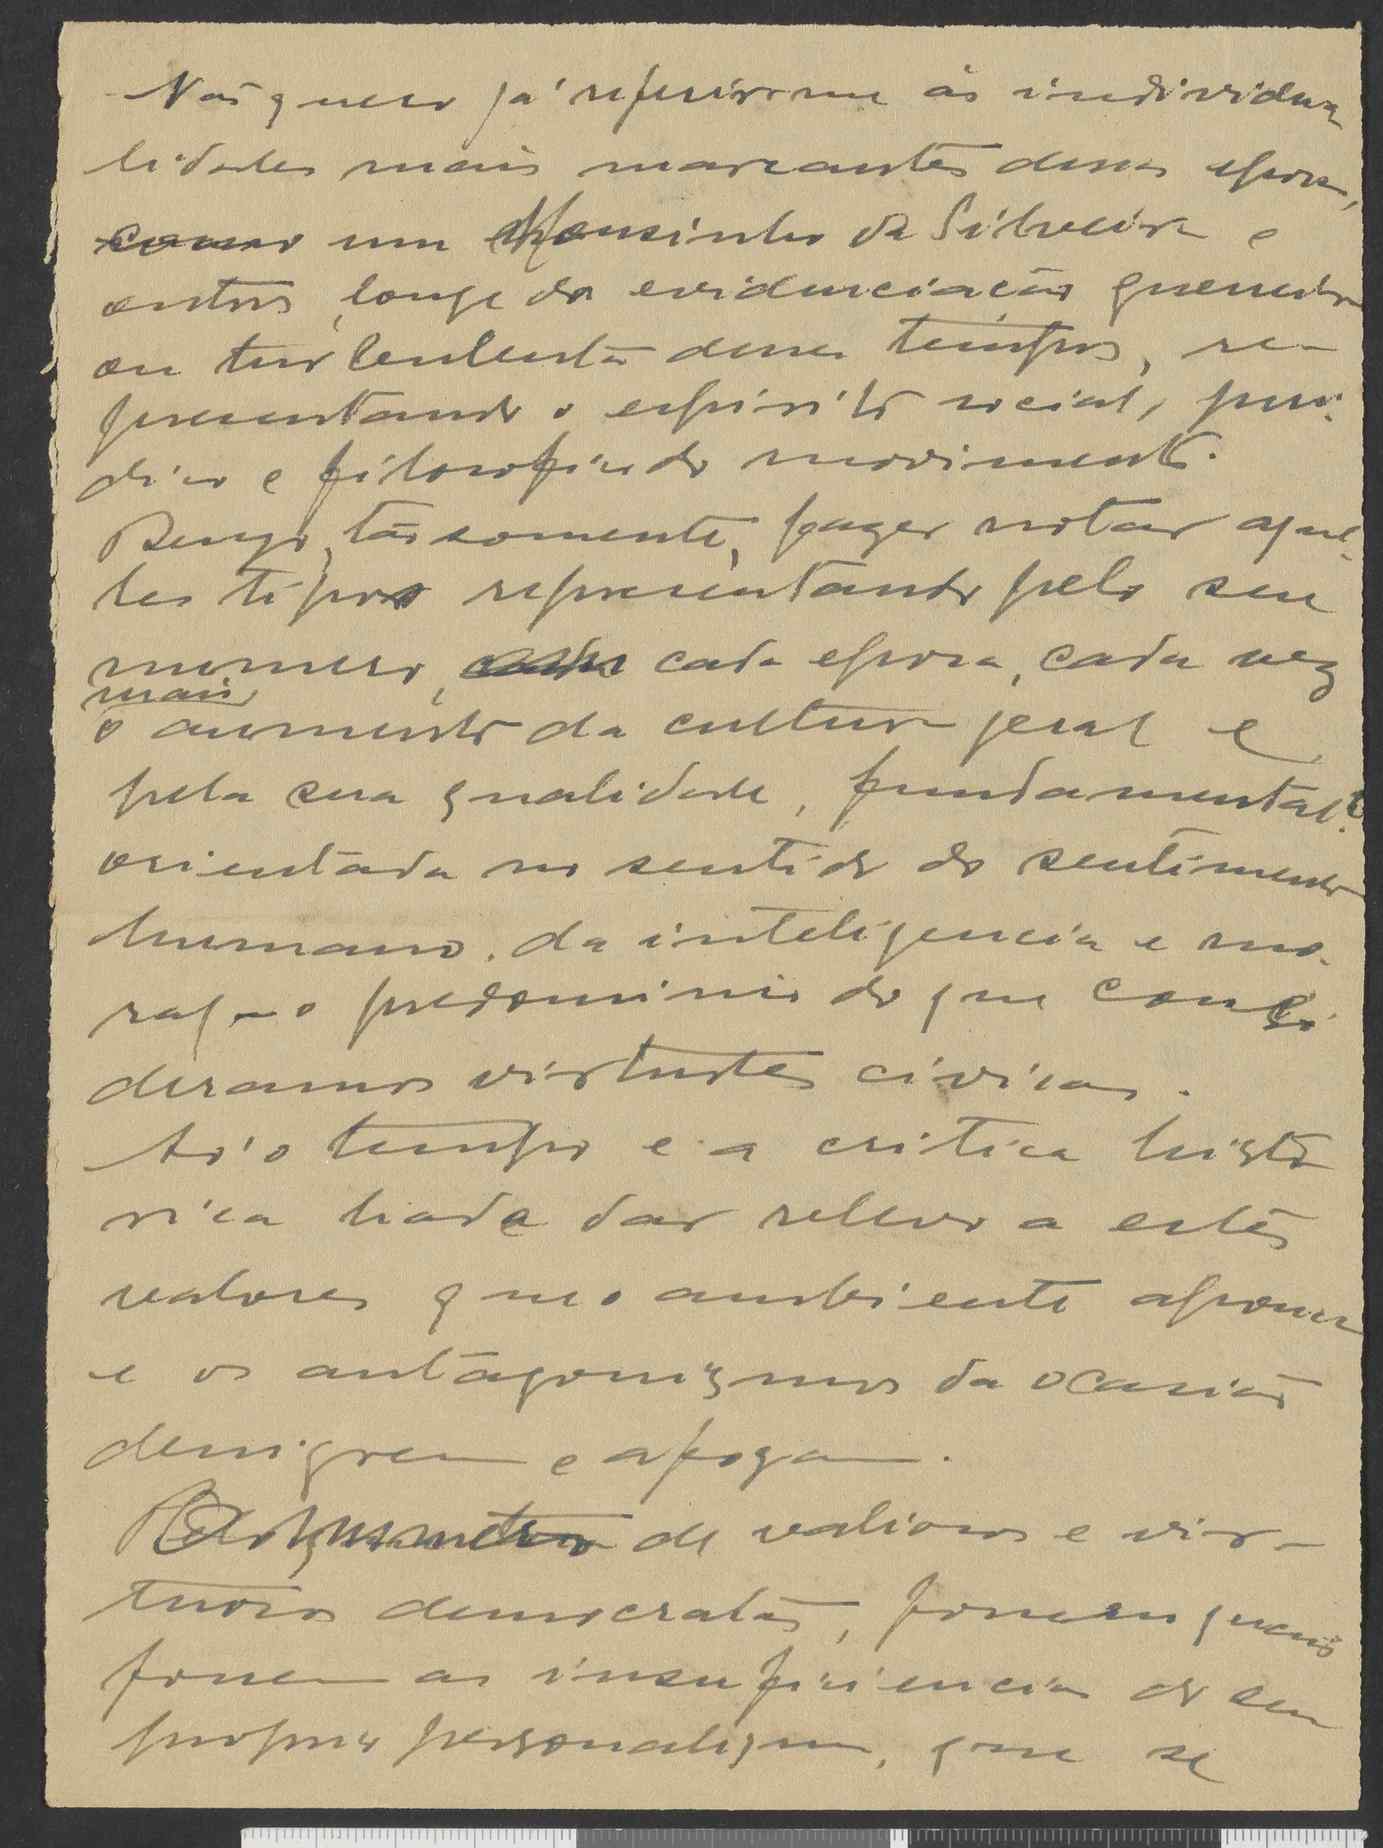 Não quero já referir-me às individua
lidades mais marcantes dessa epoca,
como um Mousinho da Silveira e
outros, longe da evidenciação guerreira
ou turbulenta desses tempos, re-
presentando o espirito social, juri-
dico e filosofico do movimento.
Desejo, tão somente, fazer notar aque-
les tipos representando pelo seu
numero, cada epoca, cada vez
mais
o aumento da cultura jeral e
pela sua qualidade, fundamental.te
orientada no sentido do sentimento
humano, da inteligencia e mo-
ral - o predominio do que consi-
deramos virtudes civicas.
Só o tempo e a critica histó
rica hade dar relevo a estes
valores que o ambiente apouca
e os antagonismos da ocasião
denigrem e afogam.
de valiosos e vir-
tuosos democratas, fossem quais
fossem as insuficiencias do seu
proprio personalismo, que se